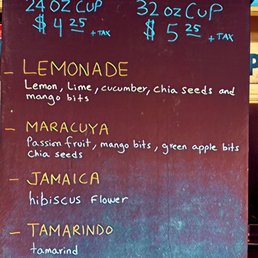 24 OZ CUP 32 OZ CUP
$ 4 25 + TAX $ 5 25 + TAX
- LEMONADE
Lemon, Lime, cucumber, chia seeds and
mango bits
- MARACUYA
Passion fruit, mango bits, green apple bits
chia seeds
- JAMAICA
hibiscus flower
- TAMARINDO
tamarind